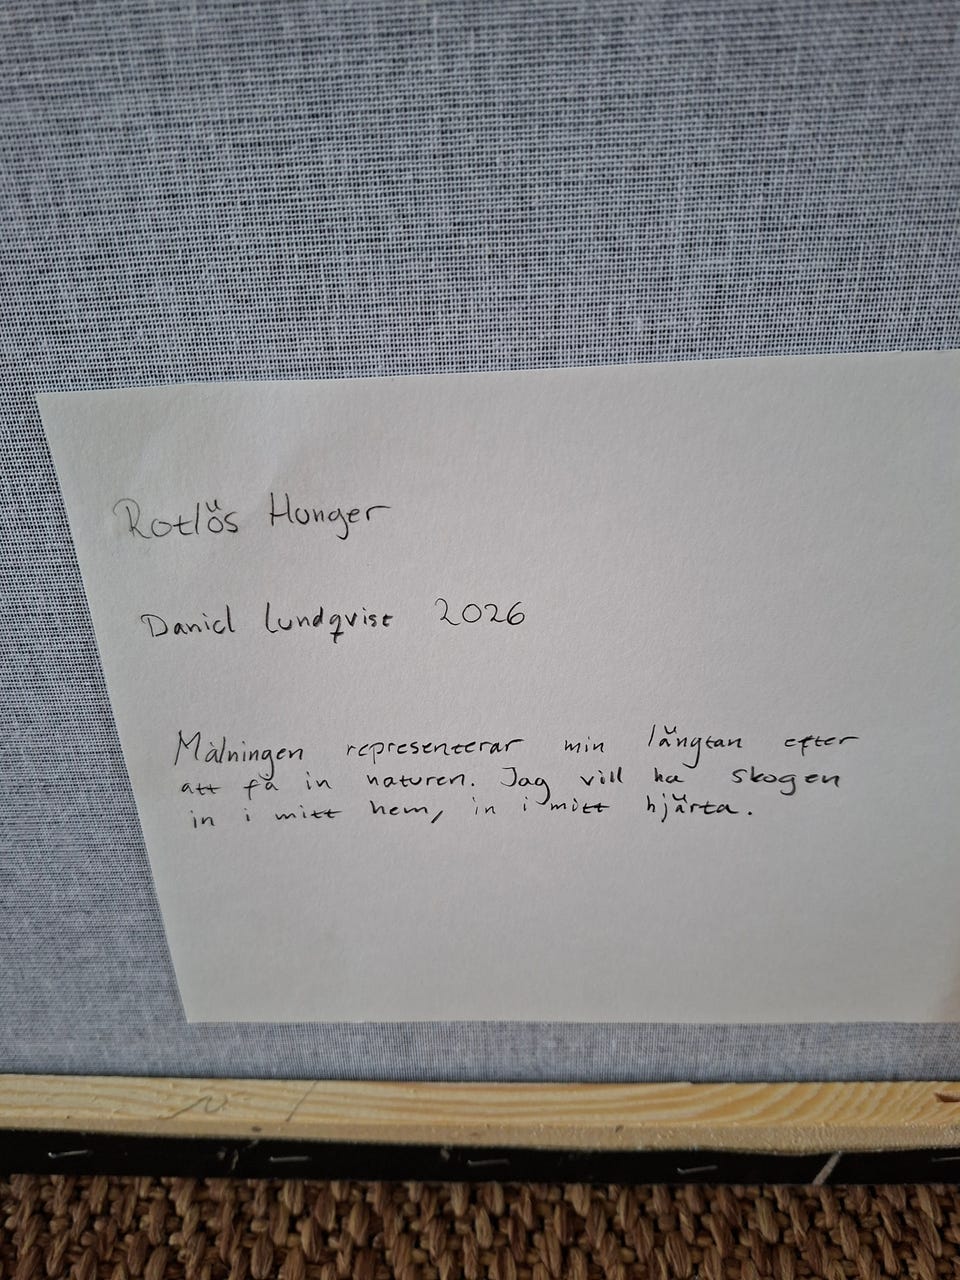 Rotlös Hunger
Daniel Lundqvist 2026
Målningen representerar min längtan efter
att få in naturen. Jag vill ha skogen
in i mitt hem, in i mitt hjärta.